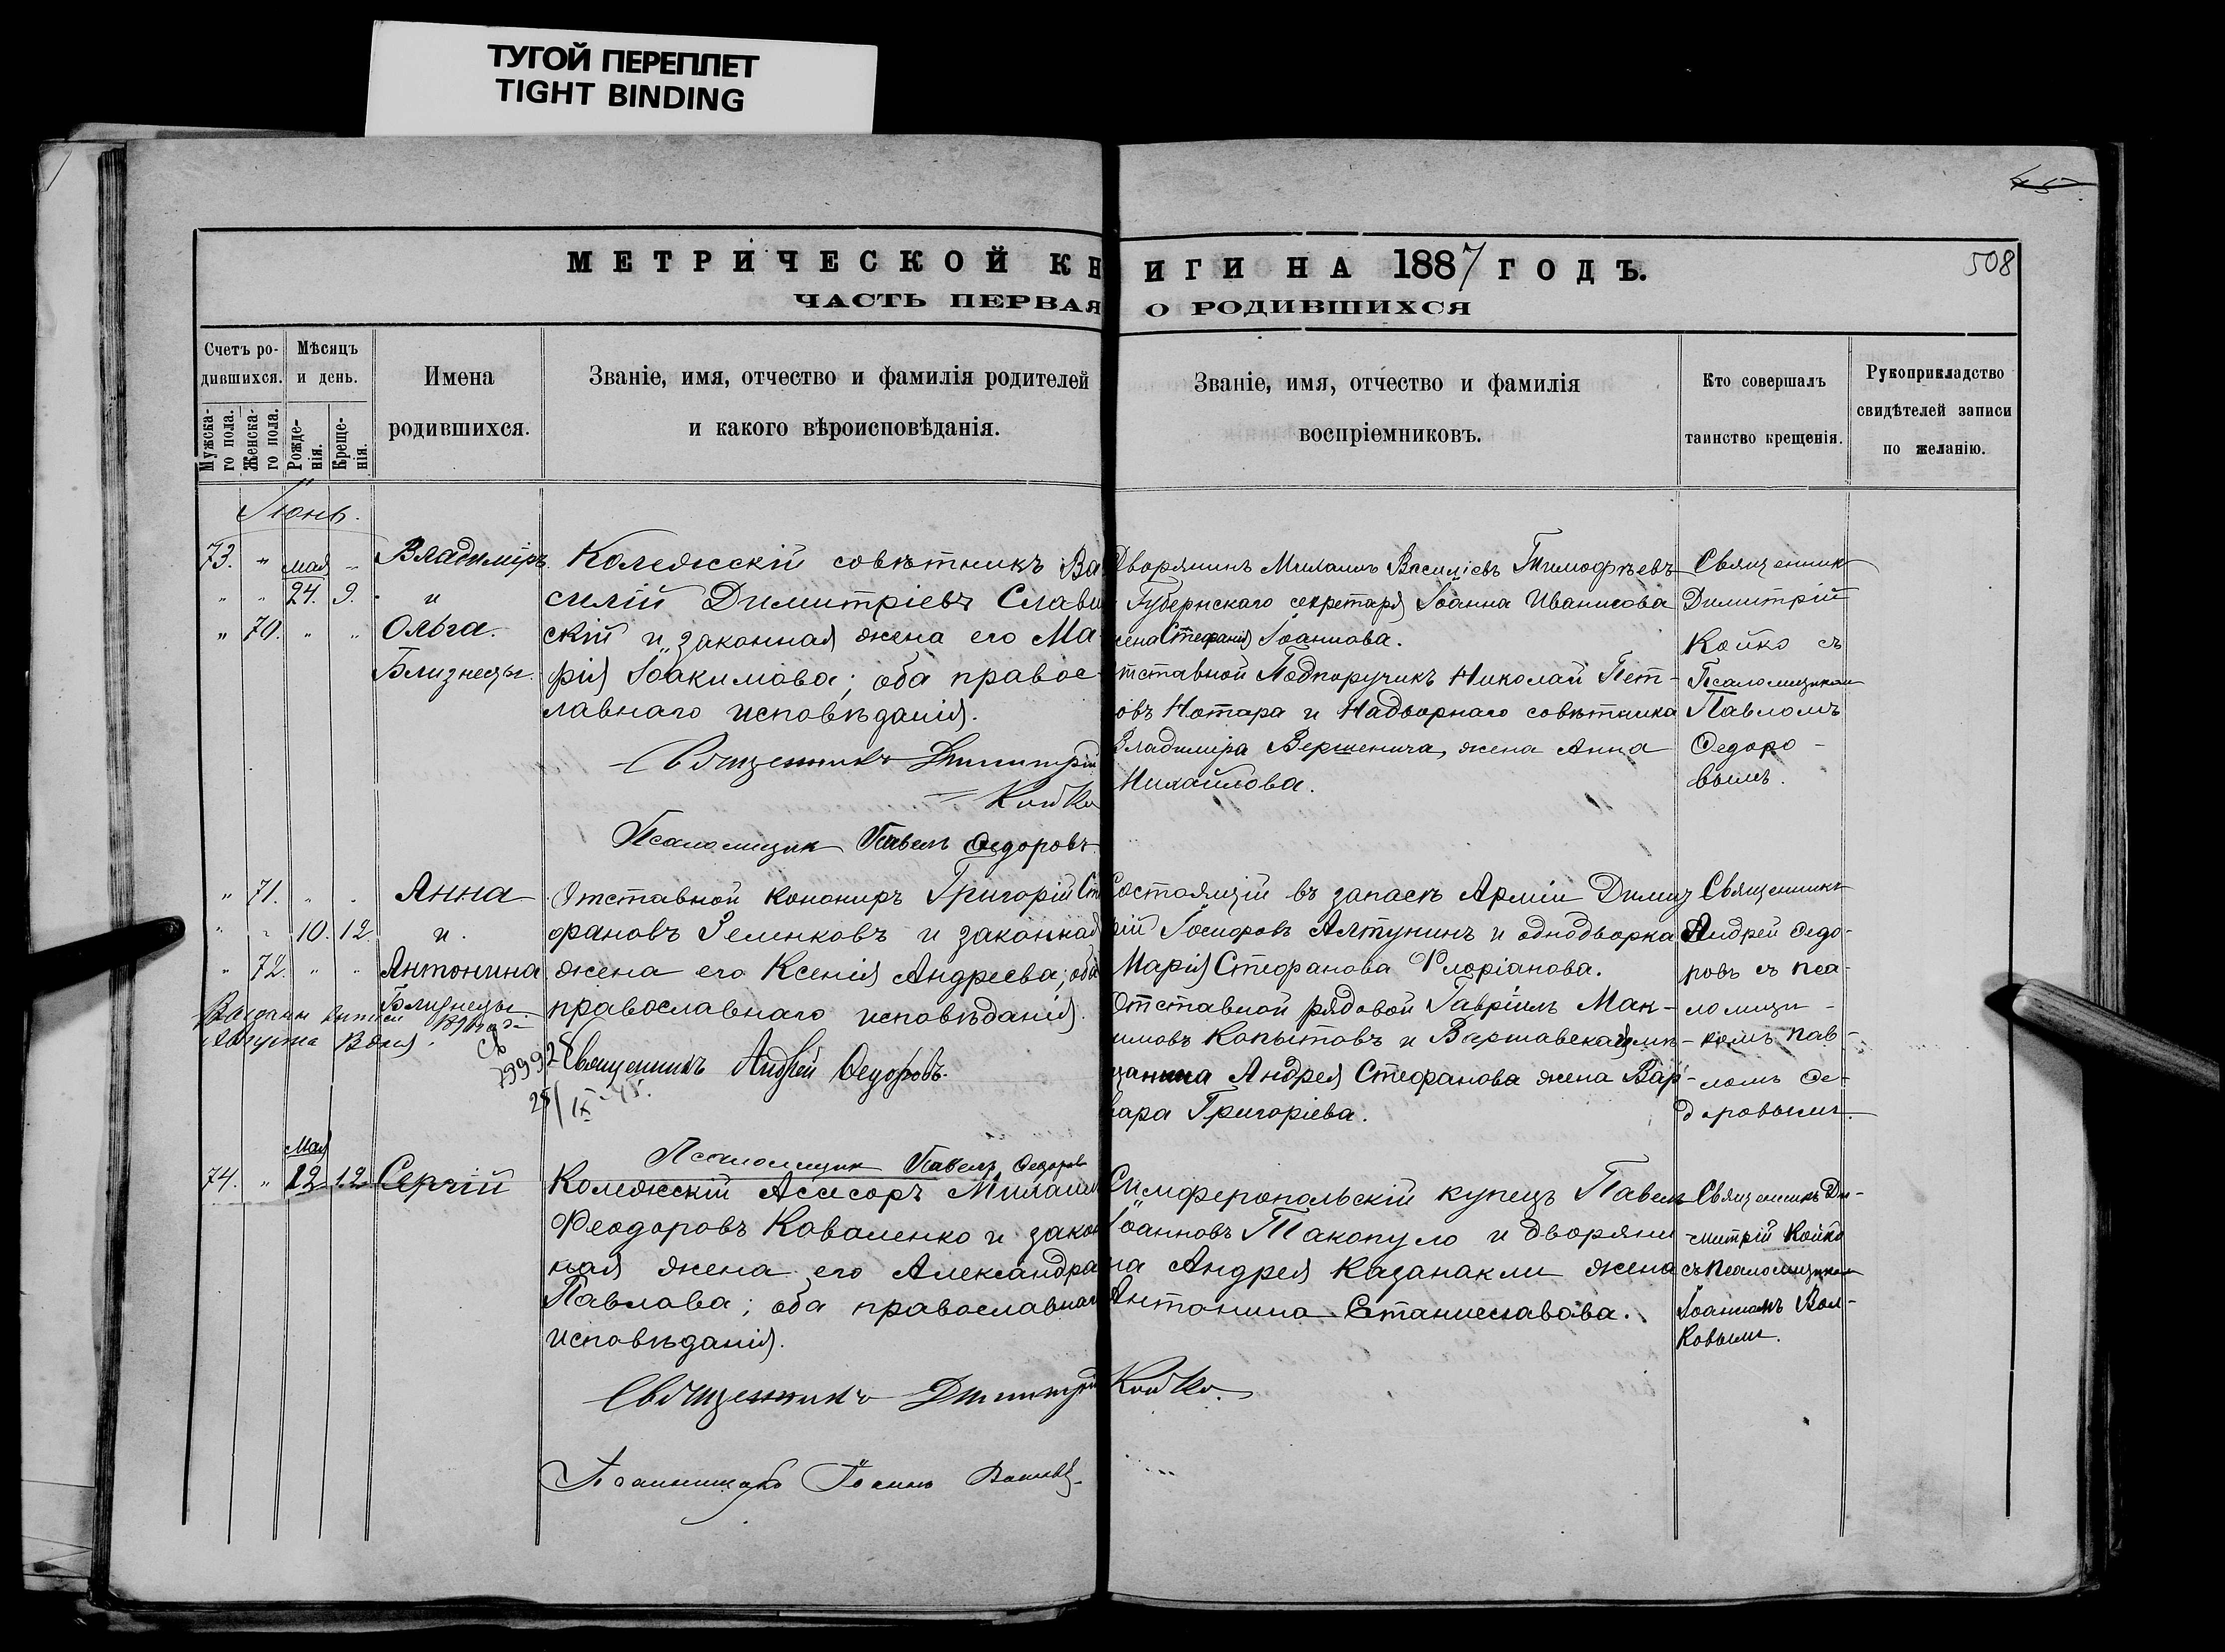 ТУГОЙ ПЕРЕПЛЕТ
TIGHT BINDING
МЕТРИЧЕСКОЙ КН
ЧАСТЬ ПЕРВАЯ
Счетъ ро-
дившихся.
Мужска-
го пола.
Женска-
го пола.
Мѣсяцъ
и день.
Рожде-
нія.
Креще-
нія.
Имена
родившихся.
Званіе, имя, отчество и фамилія родителей
и какого вѣроисповѣданія.
ИГИ НА 1887 ГОДЪ.
508
О РОДИВШИХСЯ
Званіе, имя, отчество и фамилія
воспріемниковъ.
Кто совершалъ
таинство крещенія.
Рукоприкладство
свидѣтелей записи
по желанію.
Іюнь.
73. " мая "
" " 24. 9.
" 70. " "
Владиміръ
и
Ольга.
Близнецы.
Колежскій совѣтникъ Ва
силій Димитріевъ Слави
скій и законная жена его Ма-
рія Іоакимова; оба правос-
лавнаго исповѣданія.
Священникъ Димитрій
Койко
Псаломщик Павелъ Федоровъ
Дворянинъ Михаилъ Василіевъ Тимофѣевъ
Губернскаго секретаря Іоанна Иванисова
жена Стефанія Іоаннова.
тставной Подпоручикъ Николай Пет-
овъ Нотара и Надворнаго совѣтника
Владиміра Вершенича, жена Анна
Михайлова.
Священник
Димитрій
Койко съ
Псаломщикомъ
Павломъ
Федоро-
вымъ.
" 71. " "
" " 10. 12.
" 72. " "
Анна
и
Антонина
Близнецы.
Августа
79992
25/IX-45.
Отставной конониръ Григорій Сте
фановъ Зеленковъ и законная
жена его Ксенія Андреева; оба
православнаго исповѣданія.
Священникъ Андрей Федоровъ.
Псаломщик Павелъ Федоров
Состоящій въ запасѣ Арміи Димит
рій Іосифовъ Алтунинъ и однодворка
Марія Стефанова Флоріанова.
Отставной рядовой Гавріилъ Мак-
имовъ Копытовъ и Варшавская мѣ-
щанина Андрея Стефанова жена Вар-
вара Григоріева.
Священникъ
Андрей Федо-
ровъ съ пса-
ломщи-
комъ Пав-
ломъ Фе-
доровымъ.
74. " Мая 12 12
Сергій
Колежскій Асесоръ Михаилъ
Феодоровъ Коваленко и закон
ная жена его Александра
Павлова; оба православнаго
исповѣданія.
Священникъ Димитрій Койко.
Псаломщикъ Іоаннъ Волковъ
Симферопольскій купецъ Павелъ
Іоанновъ Такопуло и дворяни
на Андрея Казанакли жена
Антонина Станиславова.
Священникъ Ди-
митрій Койко
съ псаломщиком
Іоанномъ Вол-
ковымъ.